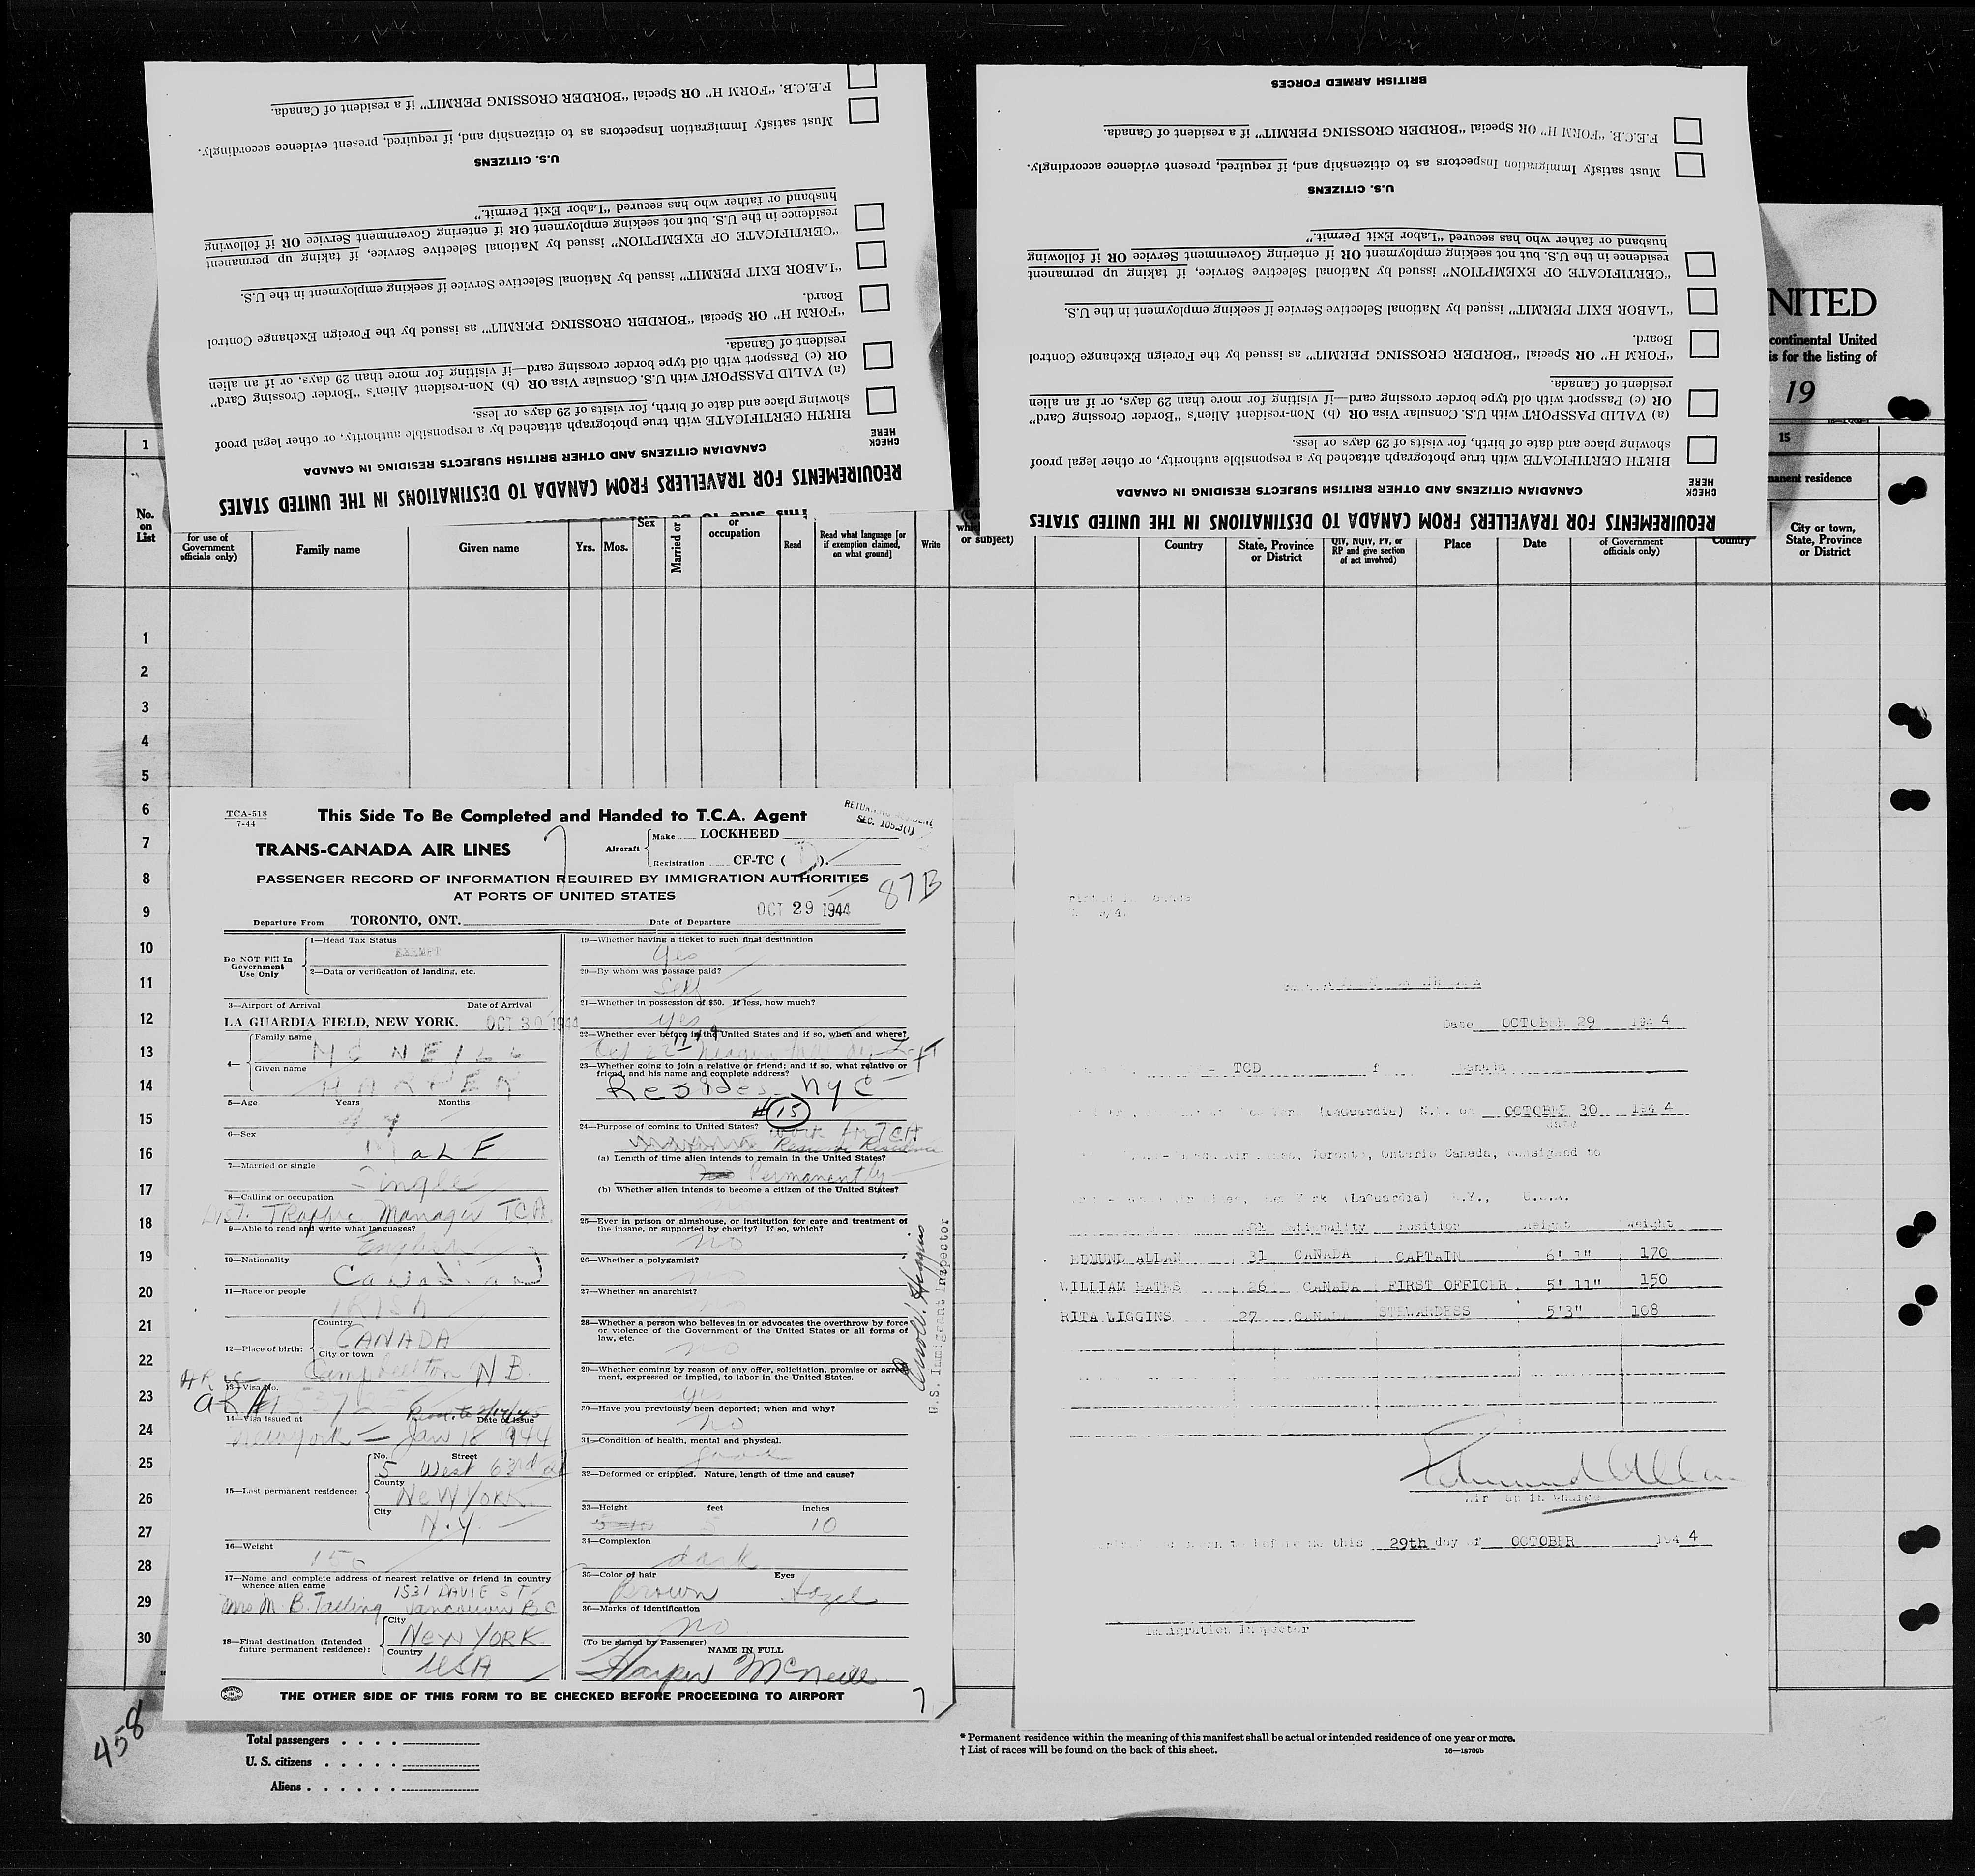 REQUIREMENTS FOR TRAVELLERS FROM CANADA TO DESTINATIONS IN THE UNITED STATES
CANADIAN CITIZENS AND OTHER BRITISH SUBJECTS RESIDING IN CANADA
CHECK
HERE
BIRTH CERTIFICATE with true photograph attached by a responsible authority, or other legal proof
showing place and date of birth, for visits of 29 days or less.
(a) VALID PASSPORT with U.S. Consular Visa OR (b) Non-resident Alien's "Border Crossing Card"
OR (c) Passport with old type border crossing card—if visiting for more than 29 days, or if an alien
resident of Canada.
"FORM H" OR Special "BORDER CROSSING PERMIT" as issued by the Foreign Exchange Control
Board.
"LABOR EXIT PERMIT" issued by National Selective Service if seeking employment in the U.S.
"CERTIFICATE OF EXEMPTION" issued by National Selective Service, if taking up permanent
residence in the U.S. but not seeking employment OR if entering Government Service OR if following
husband or father who has secured "Labor Exit Permit."
U.S. CITIZENS
Must satisfy Immigration Inspectors as to citizenship and, if required, present evidence accordingly.
F.E.C.B. "FORM H" OR Special "BORDER CROSSING PERMIT" if a resident of Canada.
REQUIREMENTS FOR TRAVELLERS FROM CANADA TO DESTINATIONS IN THE UNITED STATES
CANADIAN CITIZENS AND OTHER BRITISH SUBJECTS RESIDING IN CANADA
CHECK
HERE
BIRTH CERTIFICATE with true photograph attached by a responsible authority, or other legal proof
showing place and date of birth, for visits of 29 days or less.
(a) VALID PASSPORT with U.S. Consular Visa OR (b) Non-resident Alien's "Border Crossing Card"
OR (c) Passport with old type border crossing card—if visiting for more than 29 days, or if an alien
resident of Canada.
"FORM H" OR Special "BORDER CROSSING PERMIT" as issued by the Foreign Exchange Control
Board.
"LABOR EXIT PERMIT" issued by National Selective Service if seeking employment in the U.S.
"CERTIFICATE OF EXEMPTION" issued by National Selective Service, if taking up permanent
residence in the U.S. but not seeking employment OR if entering Government Service OR if following
husband or father who has secured "Labor Exit Permit."
U.S. CITIZENS
Must satisfy Immigration Inspectors as to citizenship and, if required, present evidence accordingly.
F.E.C.B. "FORM H" OR Special "BORDER CROSSING PERMIT" if a resident of Canada.
BRITISH ARMED FORCES
NITED
continental United
is for the listing of
19
1
15
No. on List
for use of Government officials only)
Family name
Given name
Yrs.
Mos.
Sex
Married or
or occupation
Read
Read what language [or if exemption claimed, on what ground]
Write
or subject)
Country
State, Province or District
QIV, NQIV, PV, or RP and give section of act involved)
Place
Date
of Government officials only)
Country
City or town, State, Province or District
1
2
3
4
5
6
7
8
9
10
11
12
13
14
15
16
17
18
19
20
21
22
23
24
25
26
27
28
29
30
TCA-518
7-44
This Side To Be Completed and Handed to T.C.A. Agent
TRANS-CANADA AIR LINES
Aircraft
Make LOCKHEED
Registration CF-TC ( ).
SEC. 105.3(1)
PASSENGER RECORD OF INFORMATION REQUIRED BY IMMIGRATION AUTHORITIES
AT PORTS OF UNITED STATES
87B
Departure From TORONTO, ONT.
Date of Departure OCT 29 1944
Do NOT Fill In Government Use Only
1—Head Tax Status
EXEMPT
2—Data or verification of landing, etc.
3—Airport of Arrival Date of Arrival
LA GUARDIA FIELD, NEW YORK. OCT 30 1944
4— Family name
MCNEILL
Given name
HARPER
5—Age Years Months
6—Sex
MaLE
7—Married or single
Single
8—Calling or occupation
Dist. Traffic Manager TCA
9—Able to read and write what languages?
English
10—Nationality
Canadian
11—Race or people
IRISH
12—Place of birth: Country
CANADA
City or town
Campbellton N.B.
13—Visa No.
14—Visa issued at Date of issue
New York — Jan 18 1944
15—Last permanent residence: No. Street
5 West 63rd St
County
New York
City
N.Y.
16—Weight
150
17—Name and complete address of nearest relative or friend in country
whence alien came
1531 DAVIE ST
Mrs M. B. Talling Vancouver BC
18—Final destination (Intended future permanent residence): City
New YORK
Country
USA
19—Whether having a ticket to such final destination
Yes
20—By whom was passage paid?
Self
21—Whether in possession of $50. If less, how much?
yes
22—Whether ever before in the United States and if so, when and where?
23—Whether going to join a relative or friend; and if so, what relative or
friend, and his name and complete address?
Resides NYC
#15
24—Purpose of coming to United States?
work for TCA
(a) Length of time alien intends to remain in the United States?
Permanently
(b) Whether alien intends to become a citizen of the United States?
25—Ever in prison or almshouse, or institution for care and treatment of
the insane, or supported by charity? If so, which?
no
26—Whether a polygamist?
no
27—Whether an anarchist?
no
28—Whether a person who believes in or advocates the overthrow by force
or violence of the Government of the United States or all forms of
law, etc.
no
29—Whether coming by reason of any offer, solicitation, promise or agree-
ment, expressed or implied, to labor in the United States.
yes
30—Have you previously been deported; when and why?
no
31—Condition of health, mental and physical.
good
32—Deformed or crippled. Nature, length of time and cause?
33—Height feet inches
5 10
34—Complexion
dark
35—Color of hair Eyes
Brown Hazel
36—Marks of identification
no
(To be signed by Passenger) NAME IN FULL
Harper McNeill
U.S. Immigrant Inspector
THE OTHER SIDE OF THIS FORM TO BE CHECKED BEFORE PROCEEDING TO AIRPORT
7
Date OCTOBER 29 1944
TCD Canada
(LaGuardia) N.Y. on OCTOBER 30 1944
date
Air Lines, Toronto, Ontario Canada, consigned to
New York (LaGuardia) N.Y., U.S.A.
AGE Nationality Position Height Weight
EDMUND ALLAN 31 CANADA CAPTAIN 6' 1" 170
WILLIAM BATES 26 CANADA FIRST OFFICER 5' 11" 150
RITA WIGGINS 27 CANADA STEWARDESS 5'3" 108
Edmund Allan
in Charge
before me this 29th day of OCTOBER 1944
Immigration Inspector
458
Total passengers
U. S. citizens
Aliens
* Permanent residence within the meaning of this manifest shall be actual or intended residence of one year or more.
† List of races will be found on the back of this sheet.
16—18709b